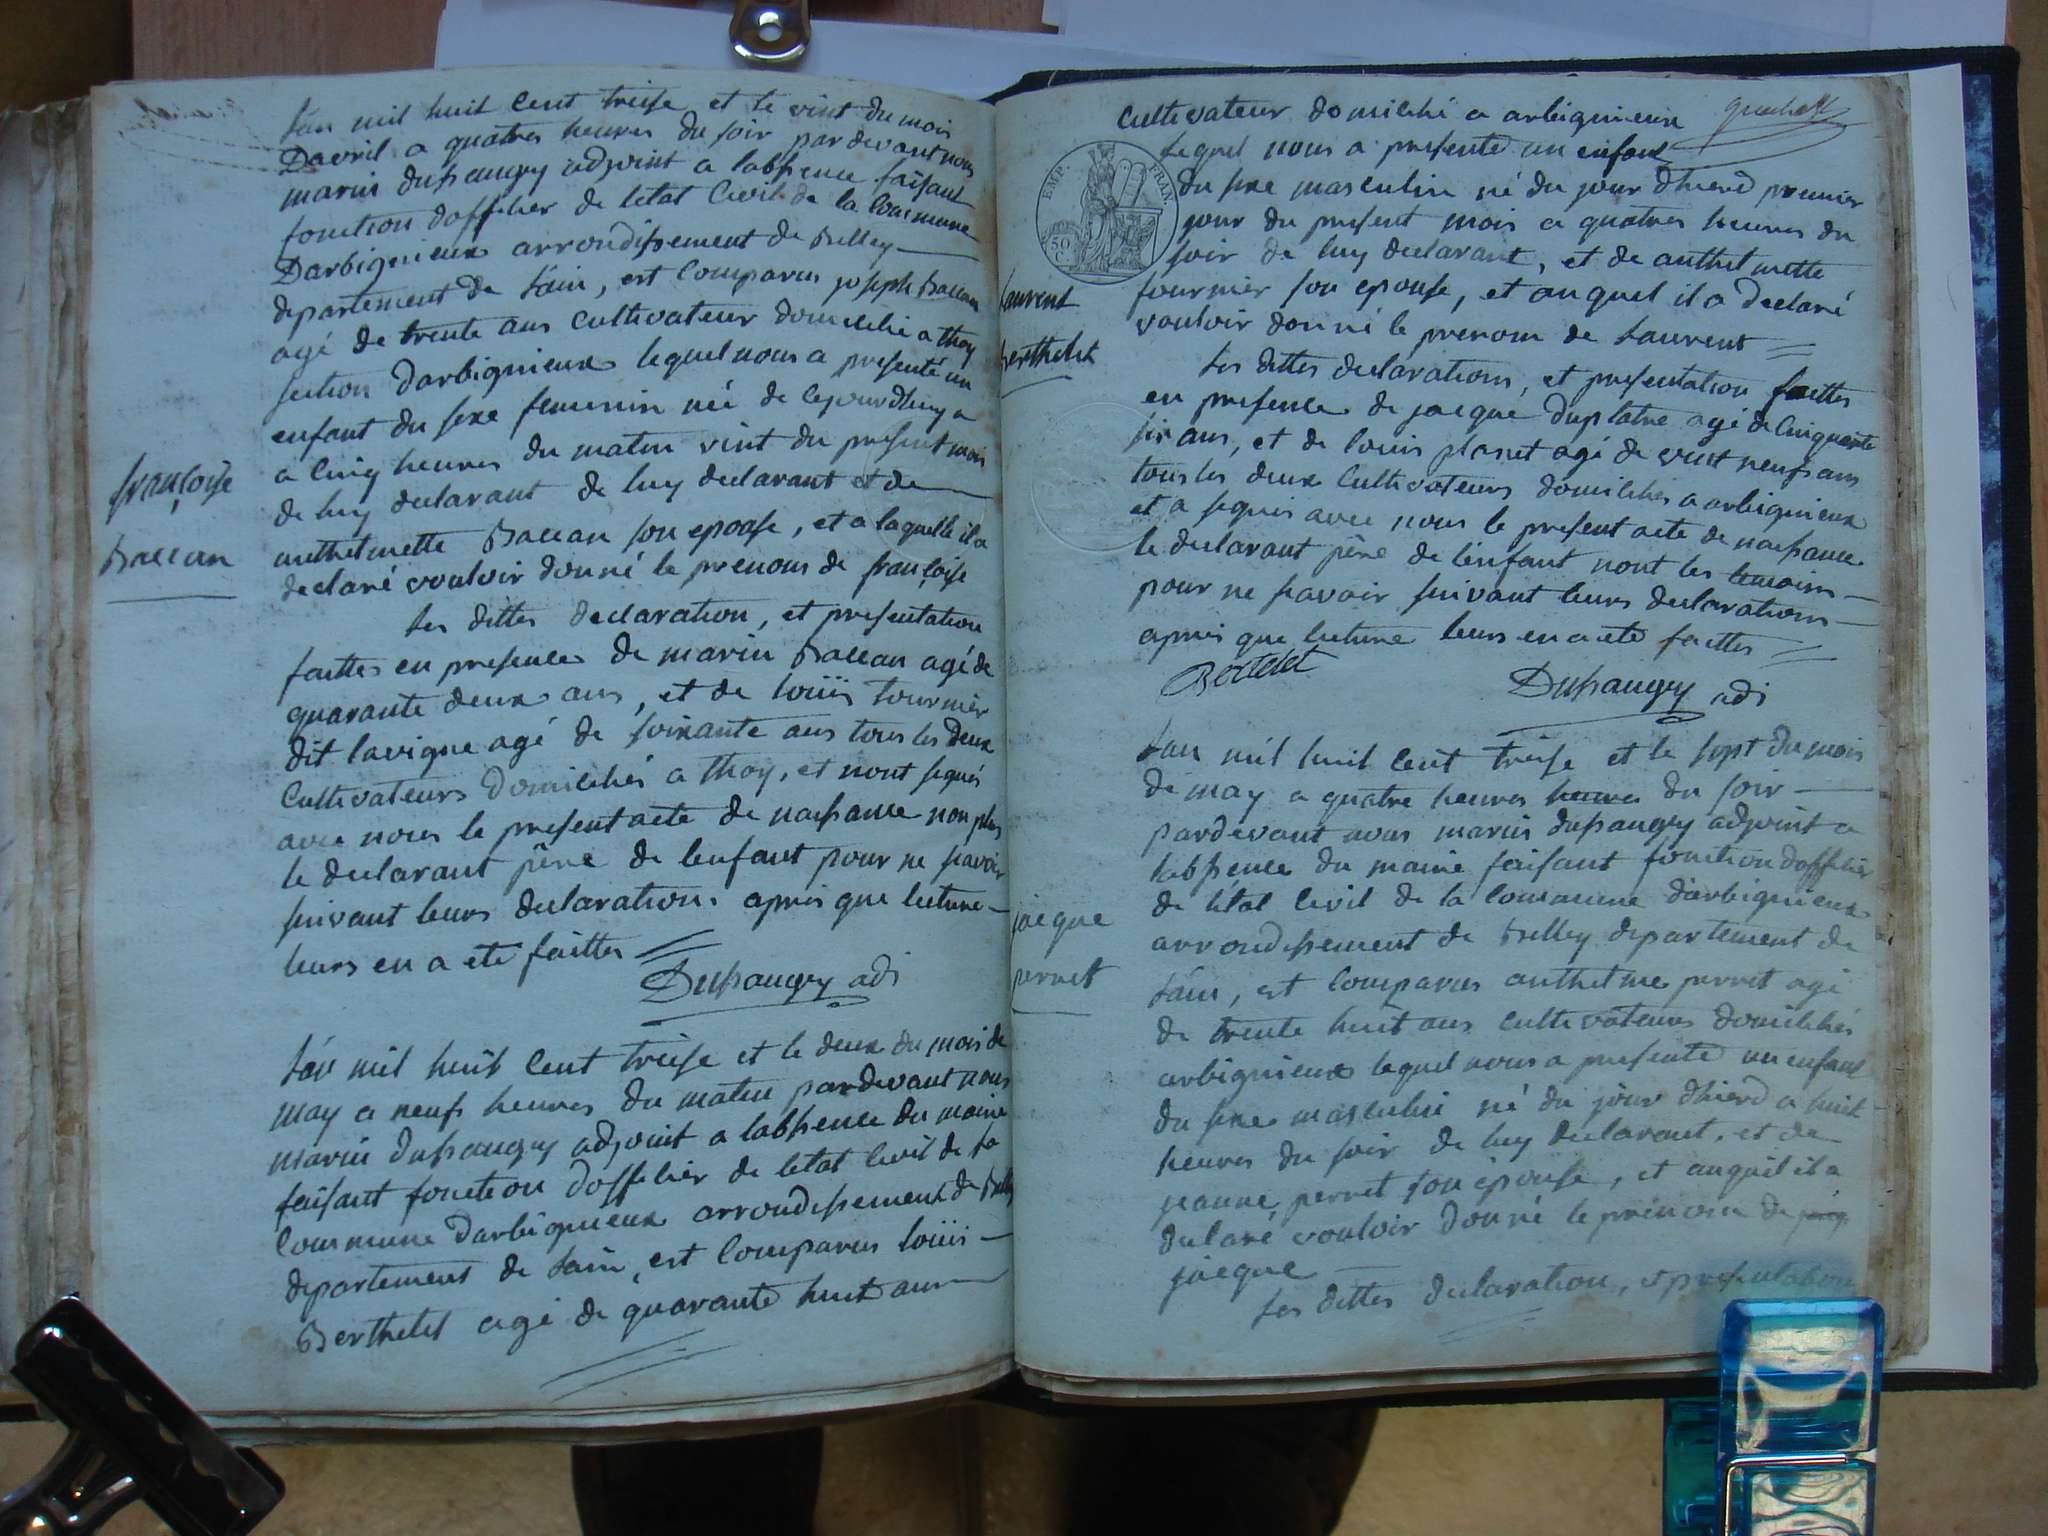 Lán mil huit Cent treise et le vint du mois
Davril a quatres heures du soir pardevant nous
marin dupaugey adjoint a labsence faisant
fonction dofficier de letat Civil de la Commune
Darbignieux arrondissement de Belley
departement de Láin, est Comparus joseph Baccan
agé de trente ans Cultivateur domicilié a thoy
section Darbignieux lequel nous a presenté un
enfant du sexe feminin née de cejourdhuy a
a Cinq heures du matin vint du present mois
de luy declarant de luy declarant et de
anthelmette Baccan son epouse, et a laquelle il a
declaré vouloir donné le prenom de françoise
françoise
Baccan
Les dittes declaration, et presentation
faittes en presences de marin Baccan agé de
quarante deux ans, et de Loüis tournier
dit lavigne agé de soixante ans tous les deux
Cultivateurs domiciliés a thoy, et nont signés
avec nous le present acte de naissance non plus
le declarant père de lenfant pour ne savoir
suivant leurs declaration. apres que lecture
leurs en a eté faittes
Dupaugey adj
Lán mil huit Cent treise et le deux du mois de
may a neufs heures du matin pardevant nous
marin dupaugey adjoint a labsence du maire
faisant fonction dofficier de letat Civil de la
Commune Darbignieux arrondissement de Belley
departement de Lain, est Comparus Loüis
Berthelet agé de quarante huit ans
Cultivateur domicilié a arbignieux
Lequel nous a presenté un enfant
EMP. FRAN.
50 C.
du sexe masculin né du jour dhierd premier
jour du present mois a quatres heures du
soir de luy declarant, et de anthelmette
fournier son epouse, et auquel il a declaré
vouloir donné le prenom de Laurent
Laurent
berthelet
Les dittes declarations, et presentation faittes
en presence de jacque duplatre agé de Cinquante
six ans, et de Louis planet agé de vint neufs ans
tous les deux Cultivateurs domiciliés a arbignieux
et a signés avec nous le present acte de naissance
le declarant père de lenfant nont les temoins
pour ne savoir suivant leurs declarations
apres que lecture leurs en a eté faittes
Bertelet
Dupaugey adj
Lan mil huit Cent treise et le sept du mois
de may a quatre heures heures du soir
pardevant nous marin dupaugey adjoint a
labsence du maire faisant fonction dofficier
de letat Civil de la Commune darbignieux
arrondissement de Belley departement de
Láin, est Comparus anthelme perret agé
de trente huit ans Cultivateurs domiciliés
arbignieux lequel nous a presenté un enfant
du sexe masculin né du jour dhierd a huit
heures du soir de luy declarant, et de
jeanne perret son epouse, et auquel il a
declaré vouloir donné le prénom de jacq
jacque
jacque
perret
Les dittes declaration, et presentation